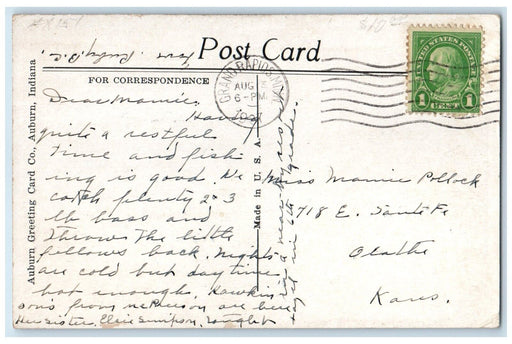 Post Card
FOR CORRESPONDENCE
Auburn Greeting Card Co., Auburn, Indiana
Made in U. S. A.
UNITED STATES POSTAGE
1 CENT 1
GRAND RAPIDS, MINN.
AUG
6-PM
Dear Mamie,
Having
quite a restful
time and fish
ing is good. We
catch plenty 2 & 3
lb bass and
throw the little
fellows back. Nights
are cold but day time
hot enough. Hawkin
sons from are here
Her sister, Elsie Simpson, taught
in 6th grade.
Miss Mamie Pollock
718 E. Santa Fe
Olathe
Kans.